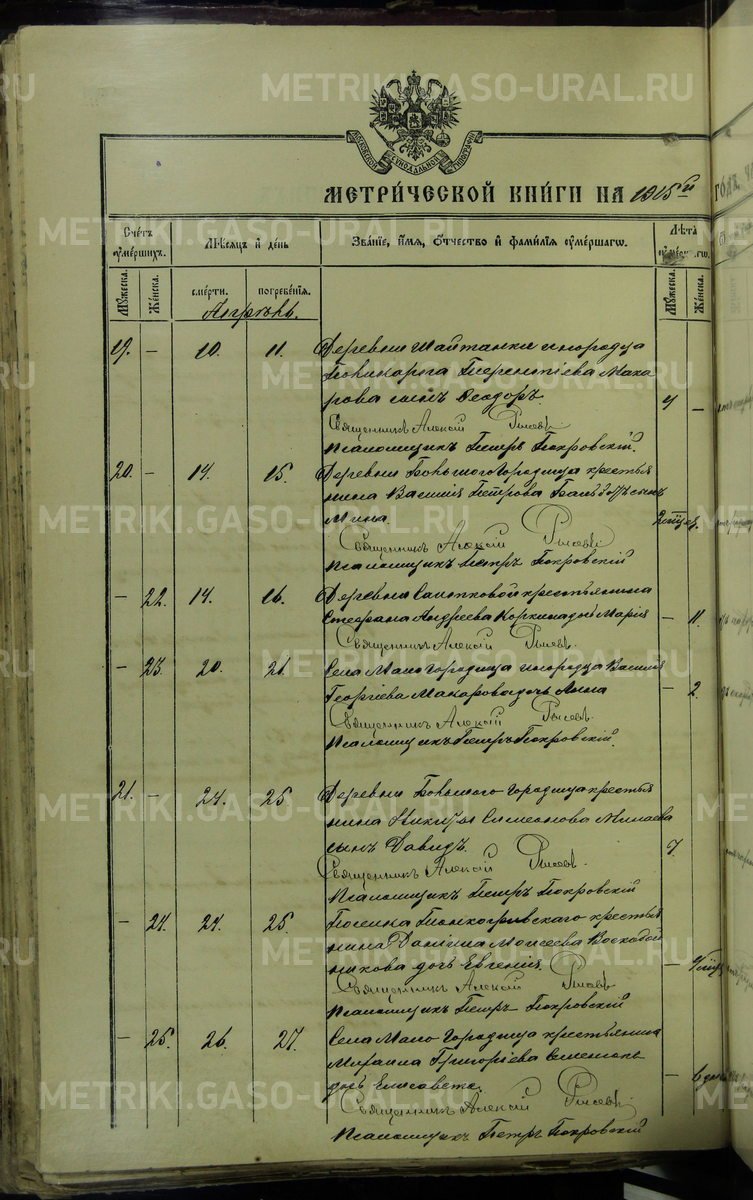 МОСКОВСКОЙ СѴНОДАЛЬНОЙ ТИПОГРАФІИ
МЕТРИ́ЧЕСКОЙ КНИ́ГИ НА 1915й
ГОДЪ
Счетъ ѹмершихъ.
Мѣсяцъ и день
Званіе, имя, отчество и фамилія ѹмершаго.
Лѣта
Мужеска.
Женска.
смерти.
погребенія.
Мужеска.
Женска.
Апрѣль.
19. — 10. 11. Деревни Шайтанки инородца
Поликарпа Терентіева Мака
рова сынъ Ѳеодоръ. —
Священникъ Алексій Рысевъ
Псаломщикъ Петръ Покровскій.
20. — 14. 15. Деревни Большого Городища крестья
нина Василія Петрова сынъ
Мина.
Священникъ Алексій Рысевъ
Псаломщикъ Петръ Покровскій
— 22. 14. 16. Деревни крестьянина
Стефана Андреева Коркина дочь Марія — 11.
Священникъ Алексій Рысевъ.
— 23. 20. 21. Села Мало Городища инородца Василія
Георгіева Макарова дочь Анна — 2.
Священникъ Алексій Рысевъ.
Псаломщикъ Петръ Покровскій.
21. — 24. 25. Деревни Большого Городища крестья
нина Никиты Симеонова Минаева
сынъ Давидъ. 7.
Священникъ Алексій Рысевъ.
Псаломщикъ Петръ Покровскій
— 24. 24. 25. Поселка крестья
нина Даніила Моисеева
дочь Евгенія. —
Священникъ Алексій Рысевъ
Псаломщикъ Петръ Покровскій
— 25. 26. 27. Села Мало Городища крестьянина
Михаила Григоріева
дочь Елисавета. —
Священникъ Алексій Рысевъ
Псаломщикъ Петръ Покровскій
METRIKI.GASO-URAL.RU